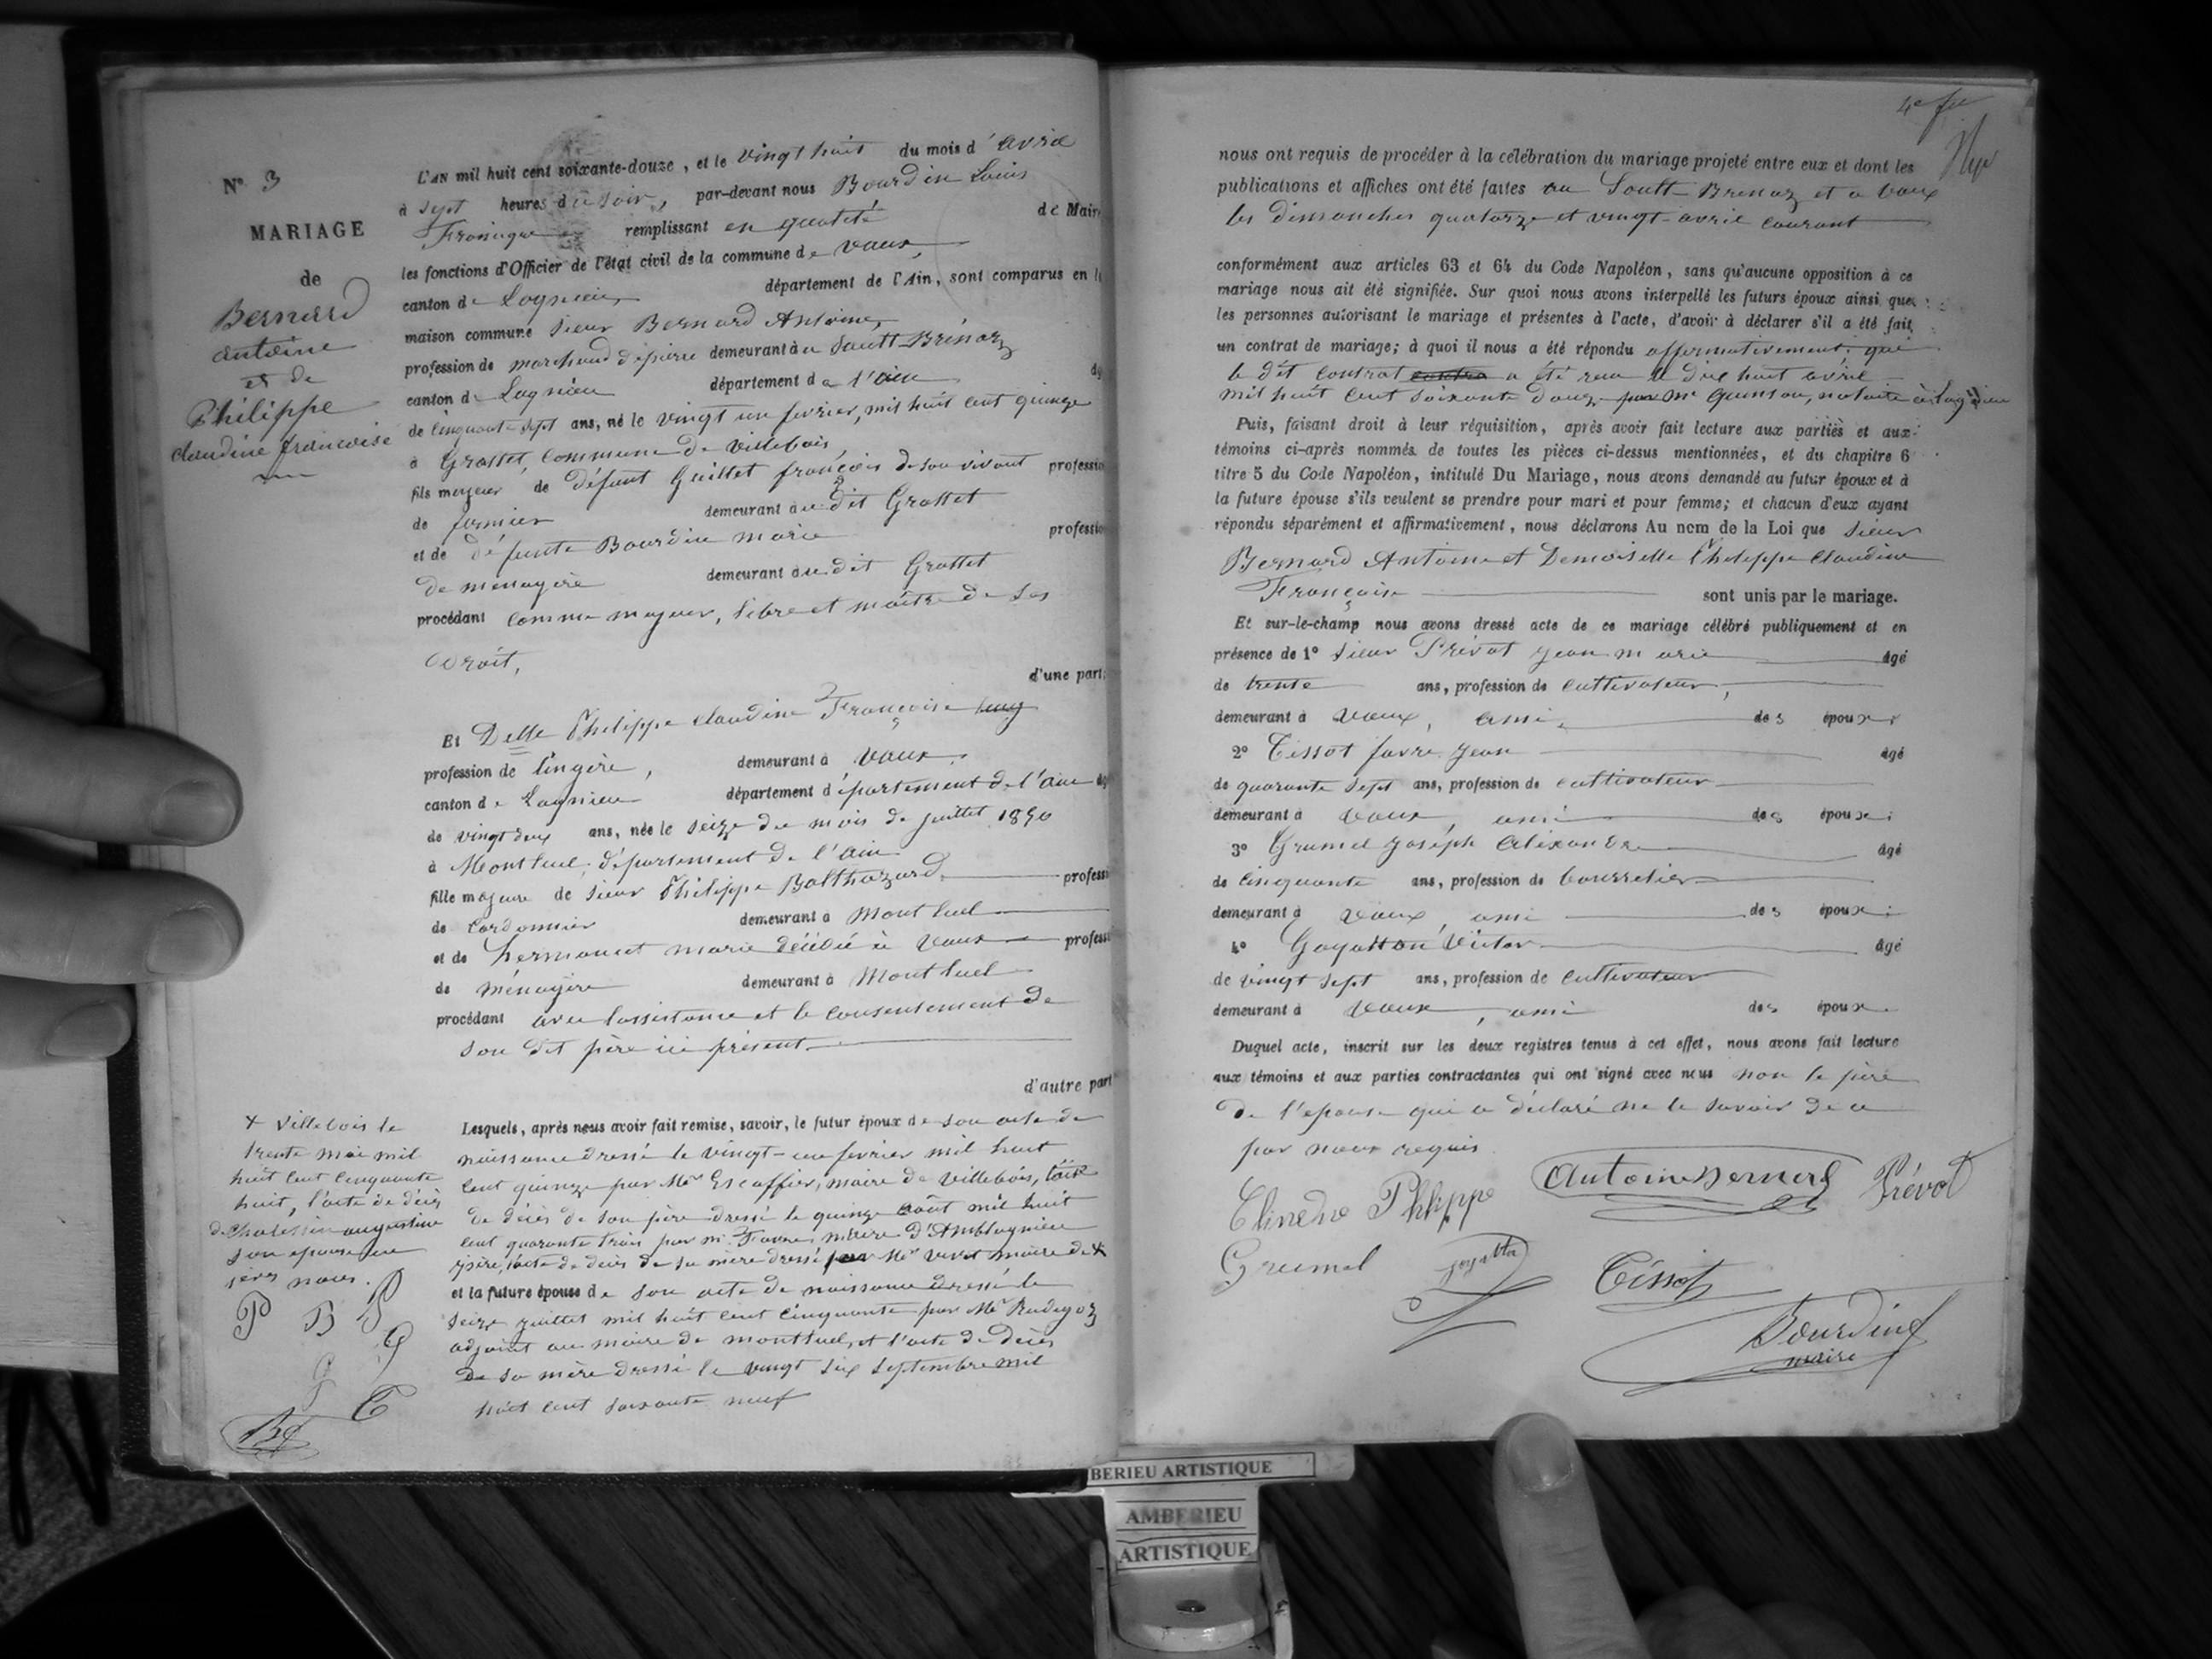 N° 3
MARIAGE
de
Bernard
antoine
et de
Philippe
claudine françoise
L'AN mil huit cent soixante-douze, et le vingt huit du mois d'avril
à sept heures du soir, par-devant nous Bourdin Louis
remplissant en qualité de Maire
les fonctions d'Officier de l'état civil de la commune de vaux,
canton de Lagnieu, département de l'Ain, sont comparus en la
maison commune sieur Bernard Antoine,
profession de marchand de pierre demeurant au Sault Brénaz
canton de Lagnieu département de l'ain
de cinquante sept ans, né le vingt un fevrier, mil huit cent quinze
à Grattet, commune de villebois,
fils majeur de défunt Guillet françois de son vivant professio
de fermier demeurant au dit Grattet
et de défunte Bourdin marie professio
de ménagère demeurant au dit Grattet
procédant comme majeur, libre et maître de ses
droit,
d'une part;
Et Delle Philippe claudine Françoise
profession de lingère, demeurant à Vaux.
canton de Lagnieu département département de l'ain
de vingt deux ans, née le seize du mois de juillet 1850
à Montluel, département de l'ain
fille majeure de sieur Philippe Balthazard professi
de cordonnier demeurant à Montluel
et de hermanet marie décédée à Vaux professi
de ménagère demeurant à Montluel
procédant avec l'assistance et le consentement de
son dit père ici présent
d'autre part
Lesquels, après nous avoir fait remise, savoir, le futur époux de son acte de
naissance dressé le vingt-un fevrier mil huit
cent quinze par Mr Escoffier, maire de villebois,
de décès de son père dressé le quinze août mil huit
cent quarante trois par mr Favre, maire d'Amblagnieu
isère, l'acte de décès de sa mère dressé par Mr vivet maire de x
et la future épouse de son acte de naissance dressé le
seize juillet mil huit cent cinquante par Mr Rudigoz
adjoint au maire de montluel, et l'acte de décès
de sa mère dressé le vingt six septembre mil
huit cent soixante neuf
x villebois le
trente mai mil
huit cent cinquante
huit, l'acte de décès
de Chatessin augustine
son epouse
P B P
G
G
T
B
4e fu
nous ont requis de procéder à la célébration du mariage projeté entre eux et dont les
publications et affiches ont été faites au Sault Brenaz et a Vaux
les dimanches quatorze et vingt-avril courant
conformément aux articles 63 et 64 du Code Napoléon, sans qu'aucune opposition à ce
mariage nous ait été signifiée. Sur quoi nous avons interpellé les futurs époux ainsi que
les personnes autorisant le mariage et présentes à l'acte, d'avoir à déclarer s'il a été fait
un contrat de mariage; à quoi il nous a été répondu affirmativement, que
le dit contrat a été reçu le dix huit avril
mil huit cent soixante douze par Me Quinson, notaire à Lagnieu
Puis, faisant droit à leur réquisition, après avoir fait lecture aux parties et aux
témoins ci-après nommés de toutes les pièces ci-dessus mentionnées, et du chapitre 6
titre 5 du Code Napoléon, intitulé Du Mariage, nous avons demandé au futur époux et à
la future épouse s'ils veulent se prendre pour mari et pour femme; et chacun d'eux ayant
répondu séparément et affirmativement, nous déclarons Au nom de la Loi que sieur
Bernard Antoine et Demoiselle Philippe Claudine
Françoise sont unis par le mariage.
Et sur-le-champ nous avons dressé acte de ce mariage célébré publiquement et en
présence de 1° sieur Prévot jean marie âgé
de trente ans, profession de cultivateur,
demeurant à Vaux, ami des époux;
2° Tissot favre jean âgé
de quarante sept ans, profession de cultivateur
demeurant à Vaux, ami des époux;
3° Grumel joseph alexandre âgé
de cinquante ans, profession de bourrelier
demeurant à Vaux, ami des époux;
4° Goyatton Victor âgé
de vingt sept ans, profession de cultivateur
demeurant à Vaux, ami des époux.
Duquel acte, inscrit sur les deux registres tenus à cet effet, nous avons fait lecture
aux témoins et aux parties contractantes qui ont signé avec nous non le père
de l'epouse qui a déclaré ne le savoir de ce
par nous requis
Phlippe Antoine Bernard Prévot
Grumel Tissot
Bourdin
maire
BERIEU ARTISTIQUE
AMBERIEU
ARTISTIQUE